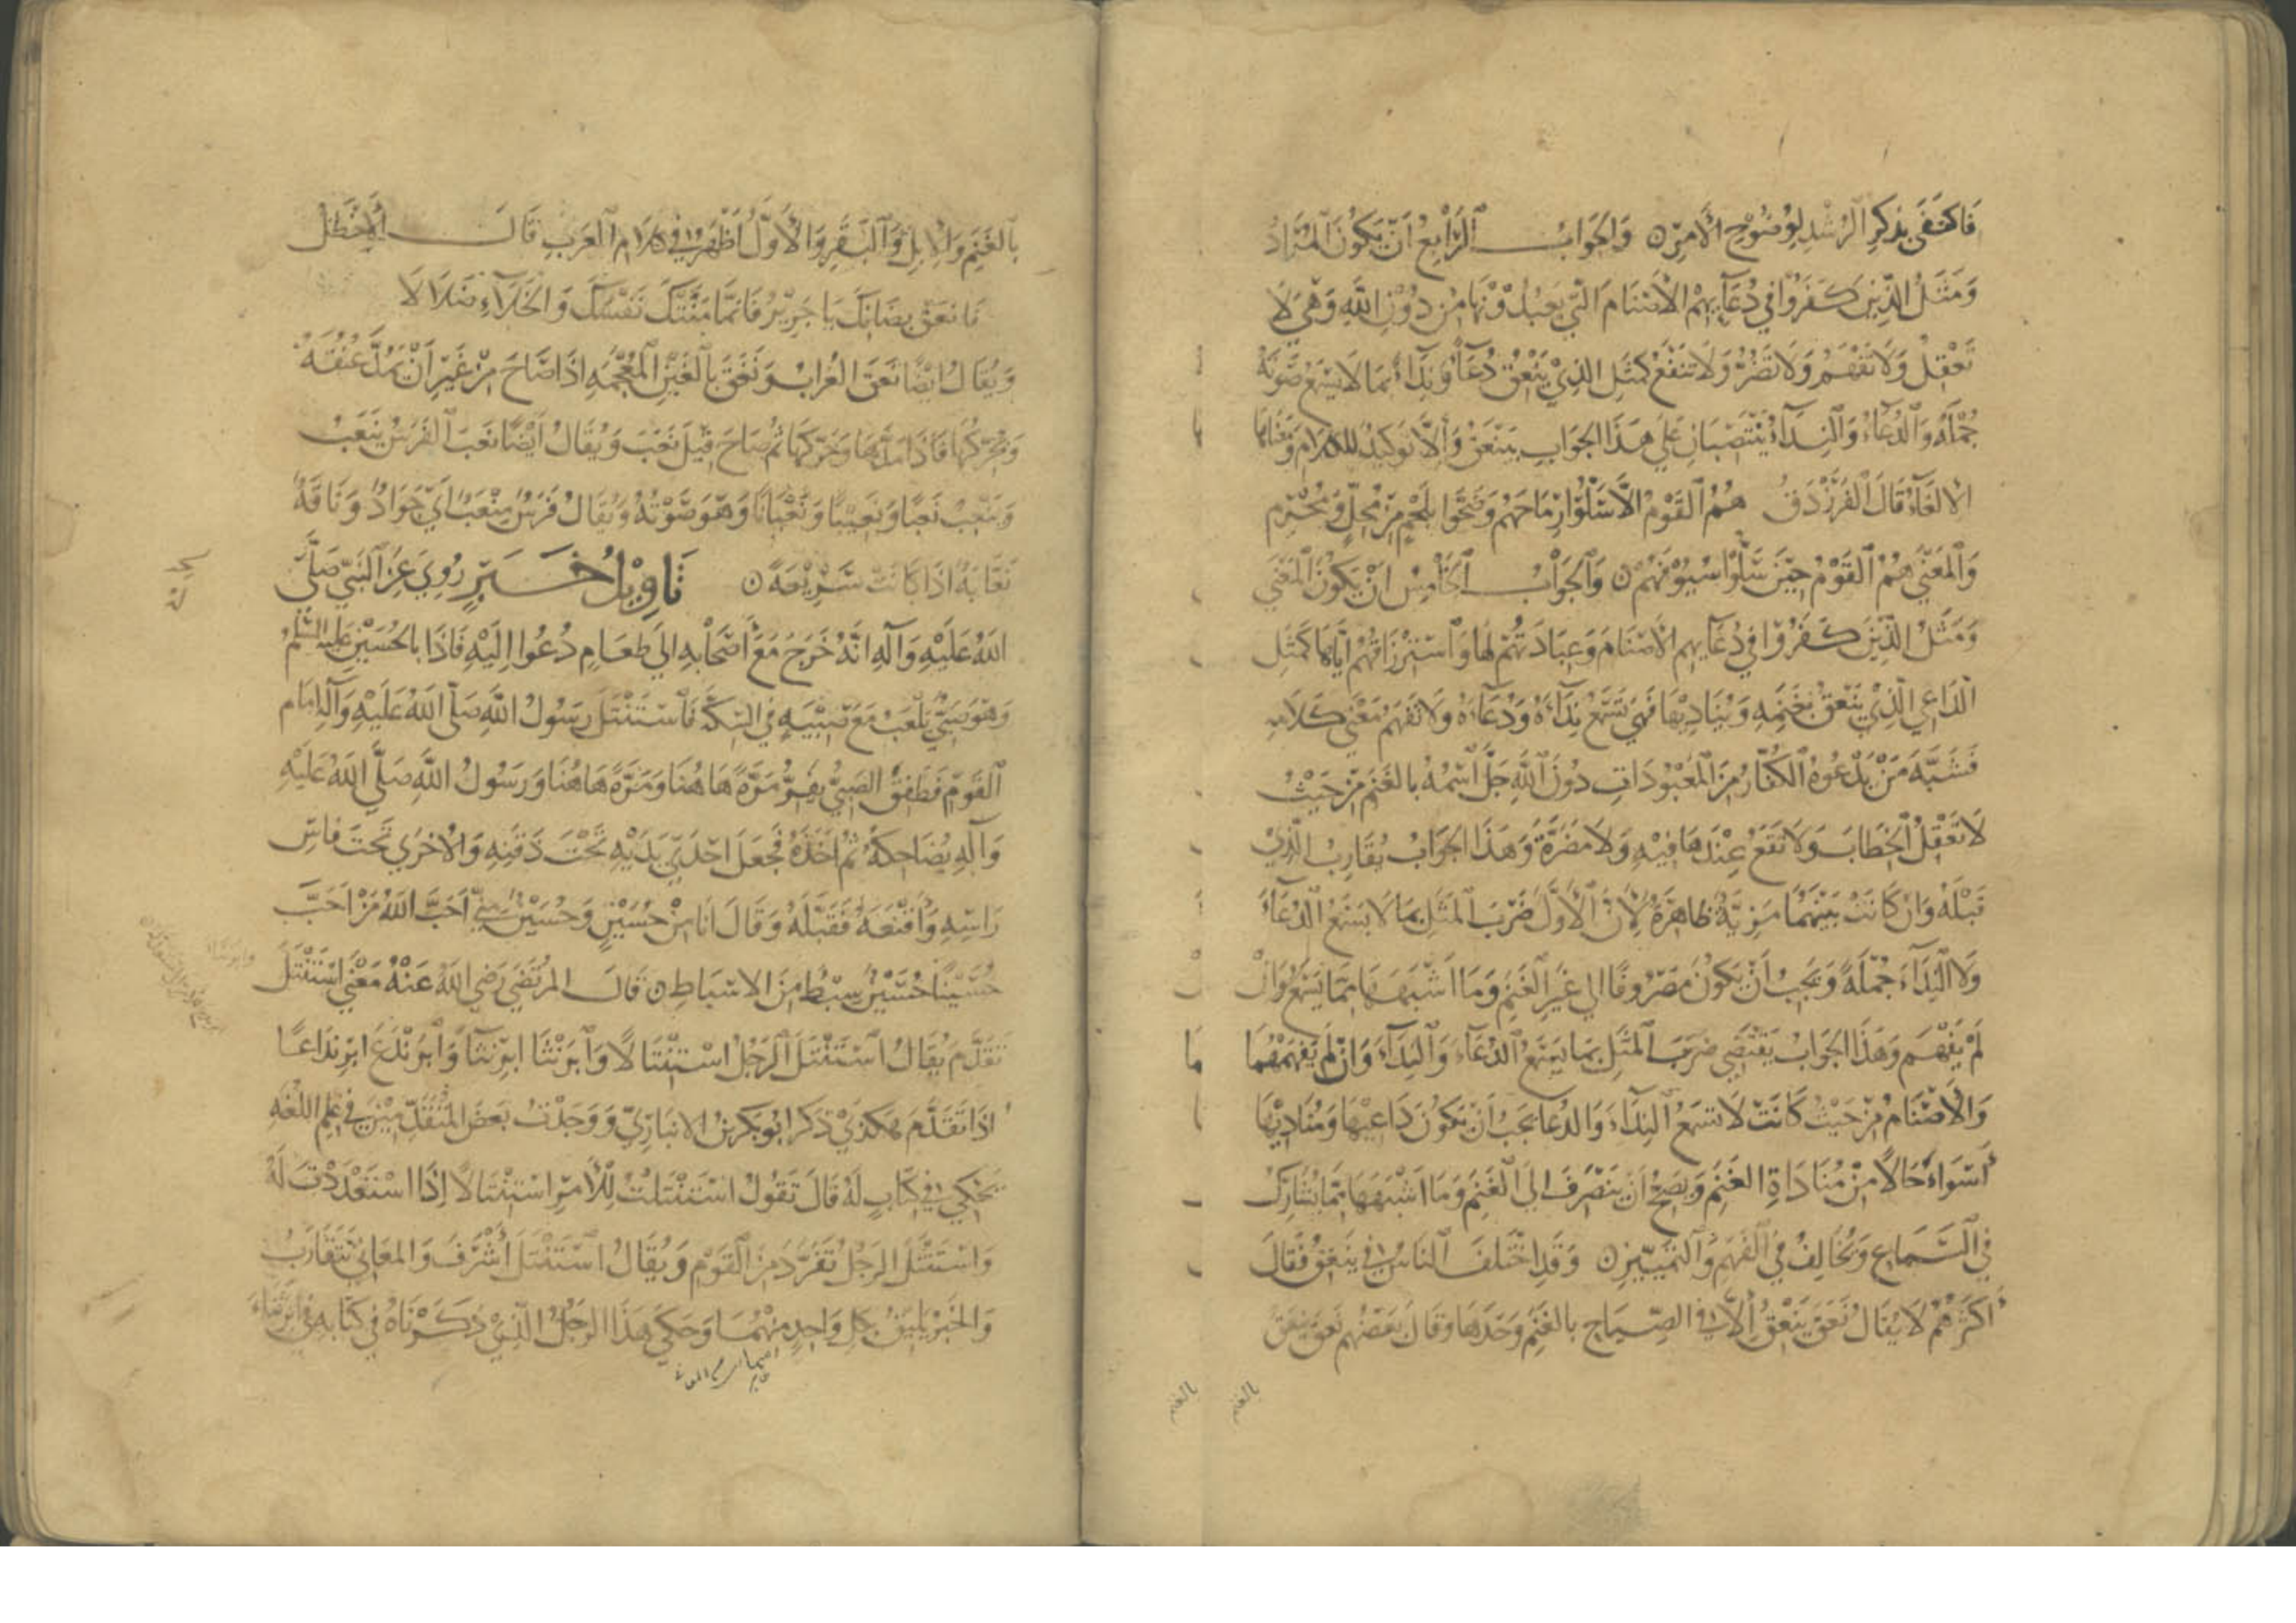 فَاكتفَى بذكرِ الرُشْدِ لِوُضُوْحِ الأَمرِ ٥ وَالجَوابُ الرَّابِعُ اَنْ يَكُونَ المُرَادُ
وَمَثَلُ الذِينَ كَفَرُوْا فِي دُعَآيهِمْ الأَصْنَامَ الَّتي يَعْبُدُوْنَهَا مِنْ دُوْنِ اللهِ وَهْيَ لَا
تَعْقِلُ وَلَا تَفْهَمُ وَلَا تَضُرُّ وَلَا تَنْفَعُ كمثَلِ الذِيْ يَنْعِقُ دُعَآءً وَنِدَآءً بِمَا لَا يَسْمَعُ صَوْتَهُ
جُمْلَةً وَالدُّعَآءُ وَالنِّدَآءُ يَنْتَصِبَانِ عَلَى هَذَا الجَوابِ بِيَنْعِقُ وَإِلَّا تَوكِيدٌ لِلكلامِ وَمَعْنَاهَا
الالغَآءُ قَالَ الفَرَزْدَقُ هُمُ القَوْمُ إلَّا حَيْثُ سَلُّوْا رِمَاحَهُمْ وَضَحَّوا بِلَحْمٍ مِنْ مُحِلٍّ وَمُحْرِمِ
وَالمَعْنَى هُمُ القَوْمُ حِيْنَ سَلُّوْا سُيُوْفَهُمْ ٥ وَالجَوابُ الخَامِسُ اَنْ يَكُونَ المَعْنَي
وَمَثَلُ الَّذِيْنَ كَفَرُوْا فِي دُعَآيهِم الأَصْنَامَ وَعِبَادَتِهُمْ لَهَا وَاسْتِرْزَاقِهُمْ اِيَّاهَا كَمَثَلِ
الرَّاعِي الَّذِيْ يَنْعِقُ بِغَنَمِهِ وَيُنَادِيْهَا فَهِيَ تَسْمَعُ نِدَآءَهُ وَدُعَآءَهُ وَلَا تَفْهَمُ مَعْنَى كَلَامِهِ
فَشَبَّهَ مَنْ يَدْعُوهُ الكُفَّارُ مِنَ المَعْبُودَاتِ دُونَ اللهِ جَلَّ اسْمُهُ بالغَنَمِ مِنْ حَيْثُ
لَا تَعْقِلُ الخِطَابَ وَلَا نَفْعَ عِنْدَهَا فِيْهِ وَلَا مَضَرَّةَ وَهَذَا الجَوابُ يُقَارِبُ الَّذِيْ
قَبْلَهُ وَاِنْ كَانَتْ بَيْنَهُمَا مَزِيَّةٌ ظَاهِرَةٌ لِأَنَّ الأَوَّلَ ضَرَبَ المَثَلَ بِمَا لَا يَسْمَعُ الدُّعَآءَ
وَلَا النِّدَآءَ جُمْلَةً وَيَجِبُ اَنْ يَكُونَ مَصْرُوفًا الي غَيْرِ الغَنَمِ وَمَا اَشْبَهَهَا مِمَّا يَسْمَعُ وَاِنْ
لَمْ يَفْهَم وَهَذَا الجَوابُ يَقْتَضِي ضَرْبَ المَثَلِ بِمَا يَسْمَعُ الدُّعَآءَ وَالنِّدَآءَ وَاِنْ لَمْ يَفْهَمْهُمَا
وَالأَصْنَامُ مِنْ حَيْثُ كَانَتْ لَا تَسْمَعُ النِّدَآءَ وَالدُعَآ يَجِبُ أَنْ يَكُونَ دَاعِيْهَا وَمُنَادِيْهَا
أَسْوَأَ حَالًا مِنْ مُنَادَاةِ الغَنَمِ وَيَصِحُّ اَنْ يَنْصَرِفَ إلَى الغَنَمِ وَمَا اَشْبَهَهَا مِمَّا يُشَارِكُ
فِي السَّمَاعِ وَيُخَالِفُ فِي الفَهْمِ وَالتَّمْيِيْزِ ٥ وَقَدِ اخْتَلَفَ النَّاسُ فِي يَنْعِقُ فَقَالَ
اَكْثَرُهُمْ لَا يُقَالُ نَعَقَ يَنْعِقُ إلَّا فِي الصِّيَاحِ بالغَنَمِ وَحْدَهَا وَقَالَ بَعْضُهُم نَعَقَ يَنْعِقُ
بالغنم
بالغنم
بالغَنَمِ وَالإبِلِ وَالبَقَرِ وَالأَوَّلُ اَظْهَرُ فِي كلامِ العَرَبِ قَالَ الأَخْطَلُ
فَانعِقْ بِضَانِكَ يَا جَرِيْرُ فَاِنَّمَا مَنَّتْكَ نَفْسُكَ فِي الخَلَآءِ ضَلَالَا
وَيُقَالُ ايْضًا نَعَقَ الغُرَابُ وَنَغَقَ بِالغَيْنِ المُعْجَمَهِ اِذَا صَاحَ مِنْ غَيْرِ اَنْ يَمُدَّ عُنُقَهُ
وَيُحَرِّكَهَا فَاِذَا مَدَّهَا وَحَرَّكَهَا ثُمَّ صَاحَ قِيْلَ نَعَبَ وَيُقَالُ اَيْضًا نَعَبَ الفَرَسُ يَنْعَبُ
وَيَنْعِبُ نَعْبًا وَنَعِيْبًا وَنَعْبَانًا وَهْوَ صَوْتُهُ وَيُقَالُ فَرَسٌ مِنْعَبٌ اَيْ جَوَادٌ وَنَاقَةٌ
نَعَّابَةٌ اذَا كَانَتْ سَرِيْعَةً ٥ تَاوِيْلُ خَبَرٍ رُوِيَ عَنِ النَّبِيِّ صَلَّى
اللهُ عَلَيْهِ وَآلِهِ اَنَّهُ خَرَجَ مَعَ أَصْحَابِهِ الي طَعَامٍ دُعُوا اِلَيْهِ فَاذَا بالحُسَيْنِ عَلَيْهِ السَّلَمُ
وَهْوَ صَبِيٌّ يَلْعَبُ مَعَ صِبْيَةٍ فِي السِّكَّةِ فَاسْتَنْتَلَ رَسُولُ اللهِ صَلَّى اللهُ عَلَيْهِ وَآلِهِ اِمَام
القَوْمِ فَطَفِقَ الصَبِيُّ يَفِرُّ مَرَّةً هَاهُنَا وَمَرَّةً هَاهُنَا وَرَسُولُ اللهِ صَلَّى اللهُ عَلَيْهِ
وَآلِهِ يُضَاحِكُهُ ثُمَّ اَخَذَهُ فَجَعَلَ اِحْدَى يَدَيْهِ تَحْتَ ذَقَنِهِ وَالأُخْرَي تَحْتَ فَاسِ
رَاسِهِ وَاَقْنَعَهُ فَقَبَّلَهُ وَقَالَ اَنَا مِنْ حُسَيْنٍ وَحُسَيْنٌ مِنِّي اَحَبَّ اللهُ مَنْ اَحَبَّ
حُسَيْنًا حُسَيْنٌ سِبْطٌ مِنَ الاسْبَاطِ ٥ قَالَ المُرتَضَي رَضِي اللهُ عَنْهُ مَعْنَى اسْتَنْتَلَ
تَقَدَّمَ يُقَالُ اسْتَنْتَلَ الرَجُلُ اسْتِنْتَالًا وَابرَنْتَا ابرِنْتَآءً وَابرَنْذَعَ ابرِنذَاعًا
اذَا تَقَدَّمَ هَكَذَى ذَكَرَ ابُو بَكرِ بنُ الانبَارِيِّ وَوَجَدْتُ بَعْضَ المُتَقَدِّمِيْنَ فِي عِلمِ اللُغَهِ
يَحْكِي فِي كِتَابٍ لَهُ قَالَ تَقُولُ اسْتَنْتَلتُ لِلأَمرِ اسْتِنْتَالًا اِذَا اسْتَعْدَدْتَ لَهُ
وَاسْتَنْتَلَ الرَجُلُ تَفَرَّدَ مِنَ القَوْمِ وَيُقَالُ اسْتَنْتَلَ اَشْرَفَ وَالمَعَانِي تَتَقَارَبُ
وَالخَبَرُ يَلِيقُ بِكلِ وَاحِدٍ مِنْهُمَا وَحَكَى هَذَا الرَجُلُ الَّذِيْ ذَكَرْنَاهُ فِي كِتَابِهِ